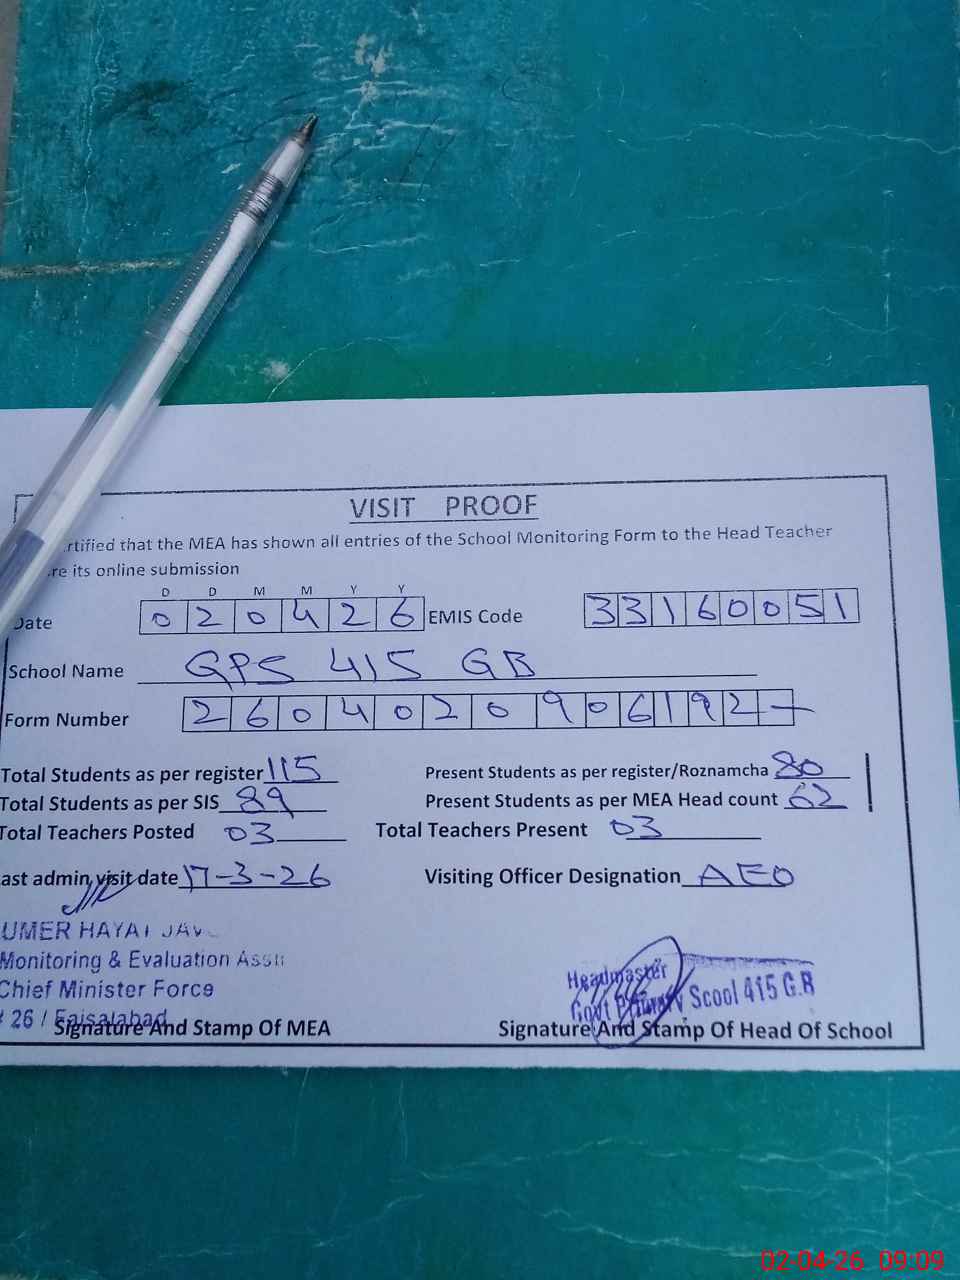 VISIT PROOF
rtified that the MEA has shown all entries of the School Monitoring Form to the Head Teacher
re its online submission
D D M M Y Y
Date 0 2 0 4 2 6 EMIS Code 3 3 1 6 0 0 5 1
School Name GPS 415 GB
Form Number 2 6 0 4 0 2 0 9 0 6 1 9 2 -
Total Students as per register 115 Present Students as per register/Roznamcha 80
Total Students as per SIS 89 Present Students as per MEA Head count 62
Total Teachers Posted 03 Total Teachers Present 03
ast admin visit date 17-3-26 Visiting Officer Designation AEO
UMER HAYAT
Monitoring & Evaluation Assti
Chief Minister Force
26 / Faisalabad
Signature And Stamp Of MEA
Headmaster
Govt Primary Scool 415 G.B
Signature And Stamp Of Head Of School
02-04-26 09:09